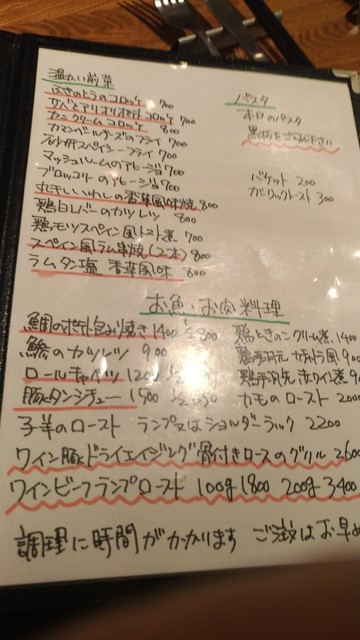 温たい前菜
ふきのとうのコロッケ 700
サバとアリオリポテトコロッケ 700
カニクリームコロッケ 800
カマンベールチーズのフライ 700
砂肝スパイシーフライ 700
マッシュルームのアヒージョ 700
ブロッコリーのアヒージョ 700
丸干しいわしの香草風味焼 800
鶏白レバーのカツレツ 800
鶏モツスペイン風トマト煮 700
スペイン風ラム串焼(2本) 800
ラムタン塩 香草風味 800
パスタ
本日のパスタ
黒板をごらん下さい
バケット 200
ガーリックトースト 300
お魚・お肉料理
鯛のポテト包み焼き 1400 1/2 800
鯵のカツレツ 900
ロールキャベツ 1200
豚とタンシチュー 1500
子羊のロースト ランプ又はショルダーラック 2200
ワイン豚ドライエイジング骨付きロースのグリル 2600
ワインビーフランプロースト 100g 1800 200g 3400
鶏ときのこクリーム煮 1400
鶏手羽元 カチャトラ風
鶏手羽先 赤ワイン煮
カモのロースト 2000
調理に時間がかかります ご注文はお早め